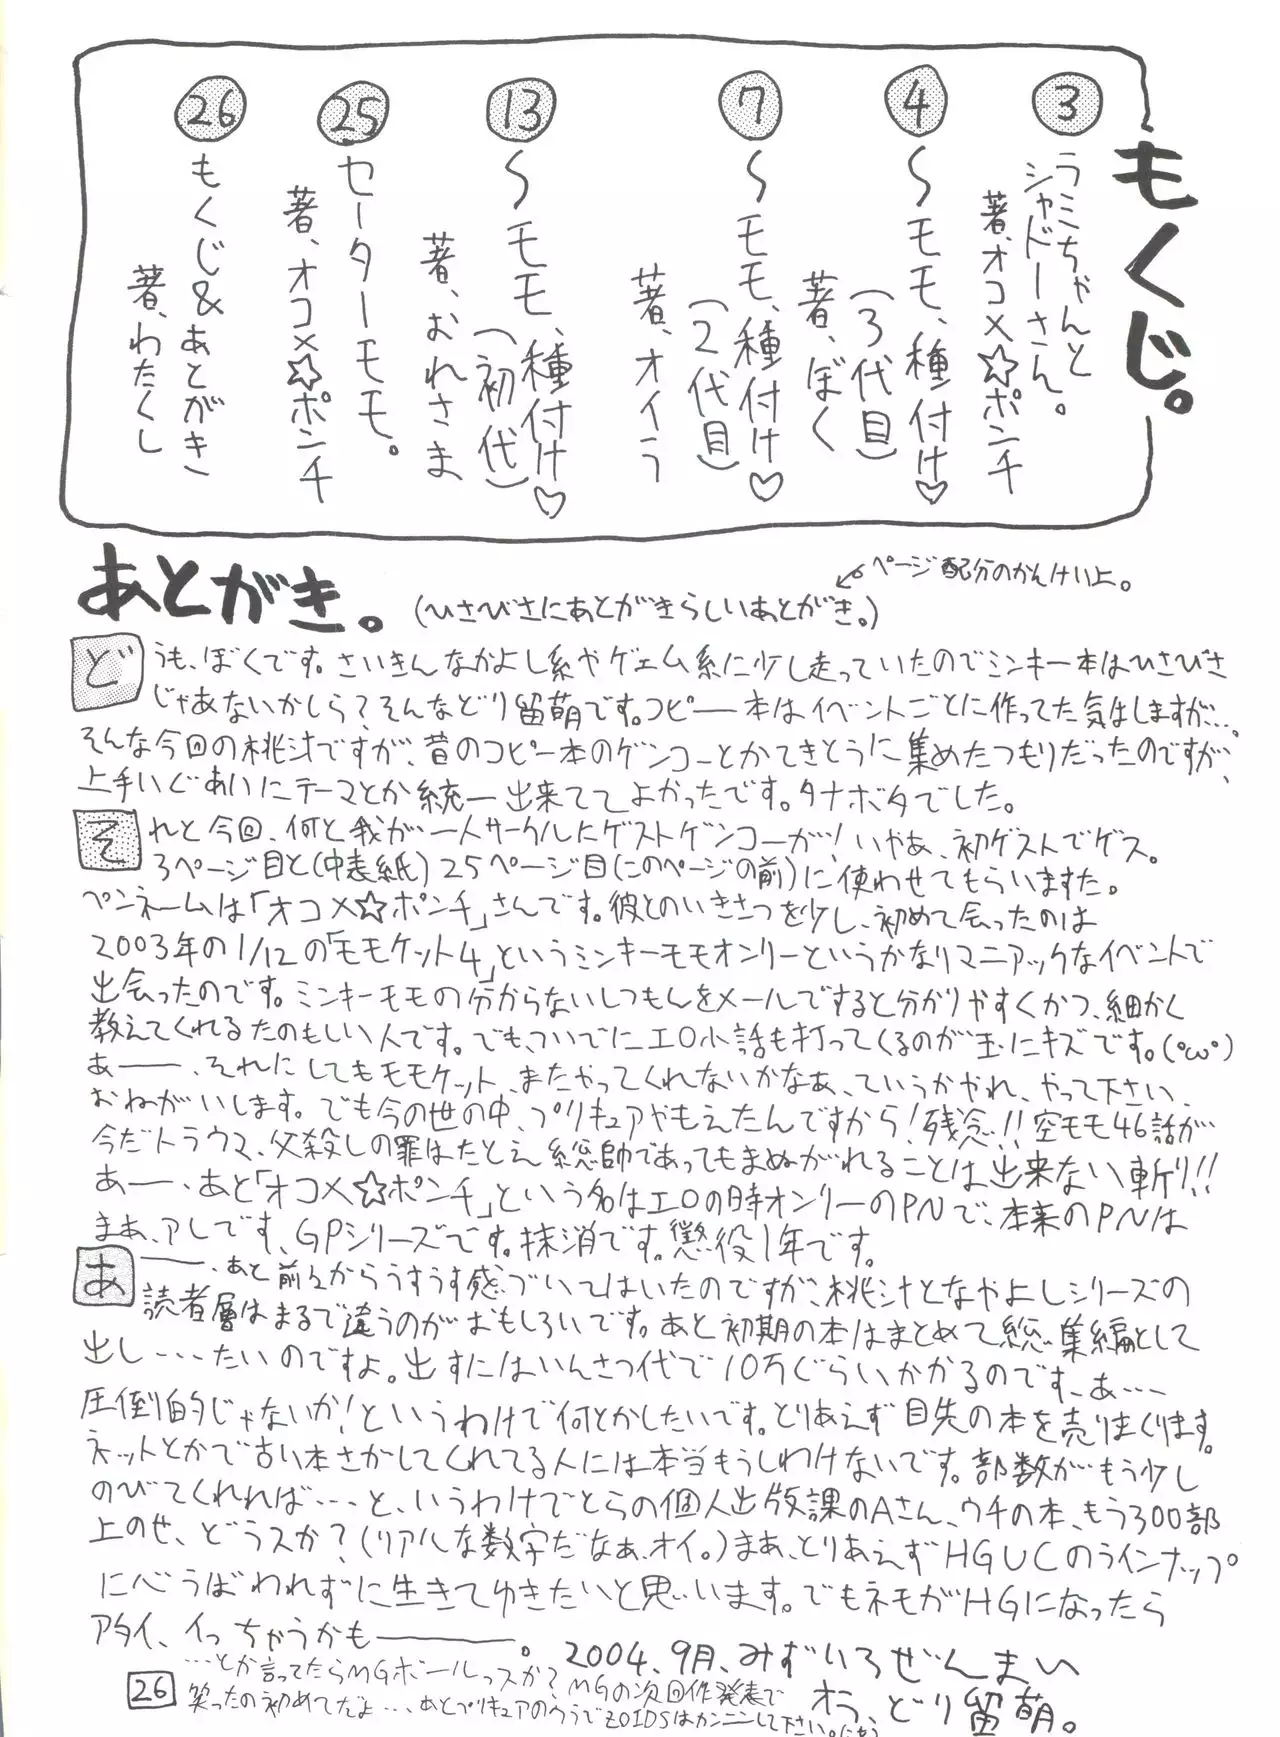 もくじ。
③
ラミちゃんと
シャドーさん。
著、オコメ☆ポンチ
④
〜モモ、種付け♡
(3代目)
著、ぼく
⑦
〜モモ、種付け♡
(2代目)
著、オイラ
⑬
〜モモ、種付け♡
(初代)
著、おれさま
㉕
セーターモモ。
著、オコメ☆ポンチ
㉖
もくじ&あとがき
著、わたくし
あとがき。
(ひさびさにあとがきらしいあとがき。)
ページ配分のかんけい上。
どうも、ぼくです。さいきんなかよし系やゲェム系に少し走っていたのでミンキー本はひさびさ
じゃあないかしら?そんなどり留萌です。コピー本はイベントごとに作ってた気はしますが…。
そんな今回の桃汁ですが、昔のコピー本のゲンコーとかてきとうに集めたつもりだったのですが、
上手いぐあいにテーマとか統一出来ててよかったです。タナボタでした。
それと今回、何と我が一人サークルにゲストゲンコーが!いやあ、初ゲストでゲス。
3ページ目と(中表紙)25ページ目(このページの前)に使わせてもらいますた。
ペンネームは「オコメ☆ポンチ」さんです。彼とのいきさつを少し、初めて会ったのは
2003年の1/12の「モモケット4」というミンキーモモオンリーというかなりマニアックなイベントで
出会ったのです。ミンキーモモの分からないしつもんをメールですると分かりやすくかつ、細かく
教えてくれるたのもしい人です。でも、ついでにエロ小話も打ってくるのが玉にキズです。(°ω°)
あーー、それにしてもモモケット、またやってくれないかなあ、ていうかやれ、やって下さい、
おねがいします。でも今の世の中、プリキュアやもえたんですから!残念!!空モモ46話が
今だトラウマ、父殺しの罪はたとえ総帥であってもまぬがれることは出来ない斬り!!
あー、あと「オコメ☆ポンチ」という名はエロの時オンリーのPNで、本来のPNは
まあ、アレです、GPシリーズです。抹消です。懲役1年です。
あーー、あと前々からうすうす感づいてはいたのですが、桃汁となかよしシリーズの
読者層はまるで違うのがおもしろいです。あと初期の本はまとめて総集編として
出し…たいのですよ。出すにはいんさつ代で10万ぐらいかかるのです、あ…
圧倒的じゃないか!というわけで何とかしたいです。とりあえず目先の本を売りまくります。
ネットとかで古い本さがしてくれてる人には本当もうしわけないです。部数がもう少し
のびてくれれば…と、いうわけでとらの個人出版課のAさん、ウチの本、もう300部
上のせ、どうスか?(リアルな数字だなぁ、オイ。)まあ、とりあえずHGUCのラインナップ
に心うばわれずに生きてゆきたいと思います。でもネモがHGになったら
アタイ、イっちゃうかもーー。2004、9月、みずいろぜんまい
オラ、どり留萌。
…とか言ってたらMGボールっスか?MGの次回作発表で
笑ったの初めてだよ…あとプリキュアのウラでZOIDSはカンニンして下さい。
26